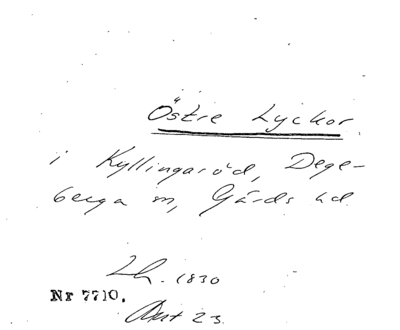 Östre Lyckor
i Kyllingaröd, Dege-
berga sn, Gärds hd
Lh. 1830
Nr 7710.
Avst 23.